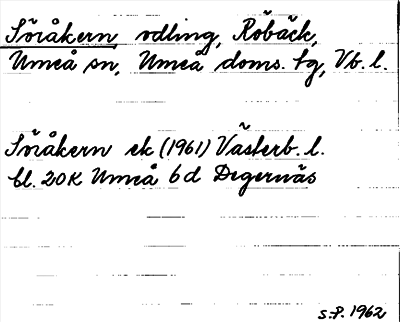 Söråkern odling, Röbäck,
Umeå sn, Umeå doms. tg, Vb. l.
Söråkern ek (1961) Västerb. l.
bl. 20K Umeå 6d Degernäs
S.P. 1962